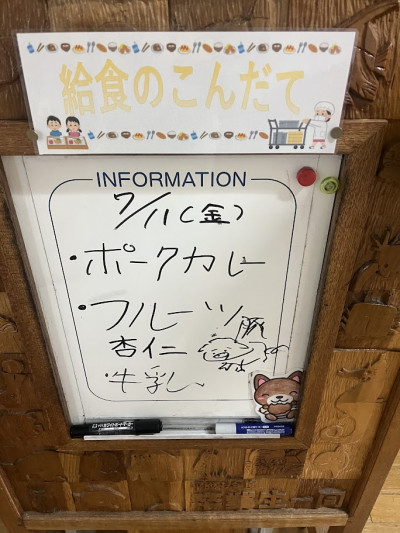 給食のこんだて
INFORMATION
7/11(金)
・ポークカレー
・フルーツ
杏仁
・牛乳
豚